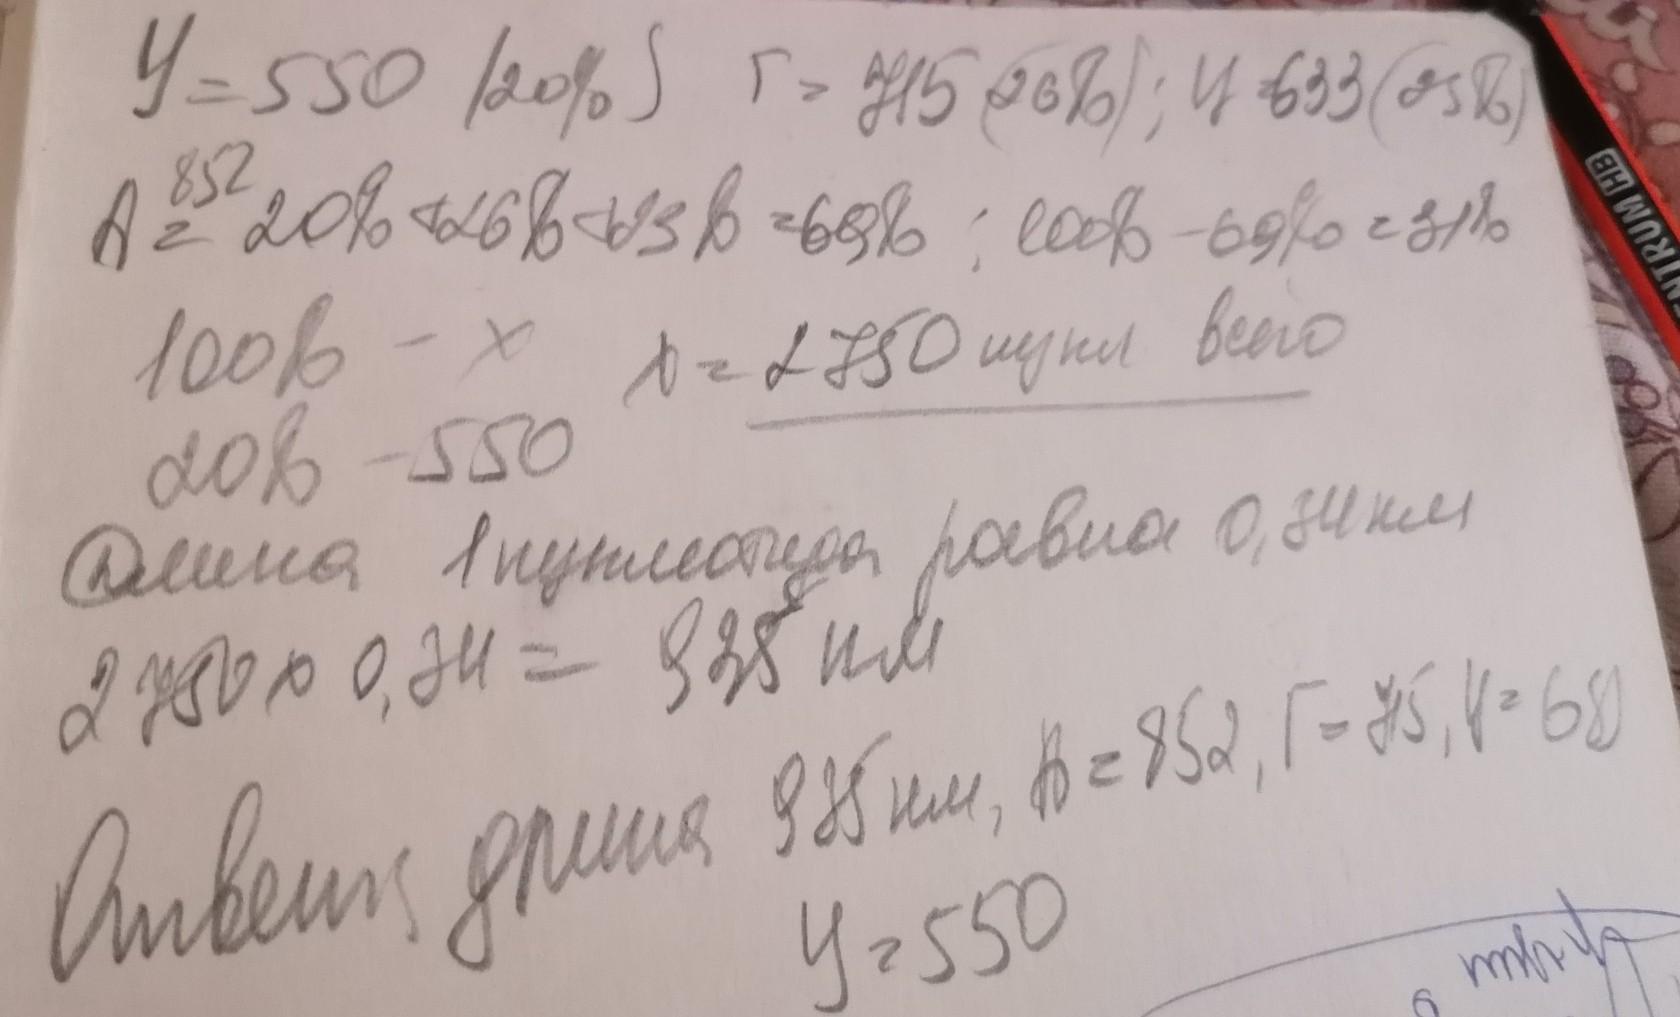 У = 550 (20%) Г = 715 (26%); Ц = 633 (23%)
852
А = 20% + 26% + 23% = 69% ; 100% - 69% = 31%
100% - x x = 2750 нукл всего
20% - 550
Длина 1 нуклеотида равна 0,34 нм
2750 x 0,34 = 935 нм
Ответ: длина 935 нм, А = 852, Г = 715, Ц =
У = 550
CENTRUM HB